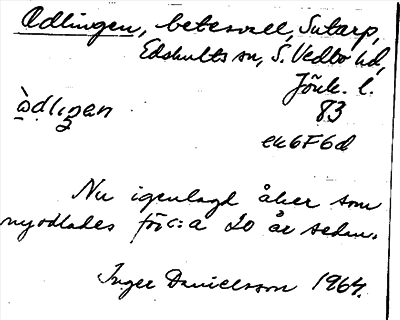 Odlingen, betesvall, Sutarp,
Edshults sn, S. Vedbo hd,
Jönk. l.
ὼdlιgən 83
ek6F6d
Nu igenlagd åker som
nyodlades för c:a 20 år sedan.
Inger Danielsson 1964.